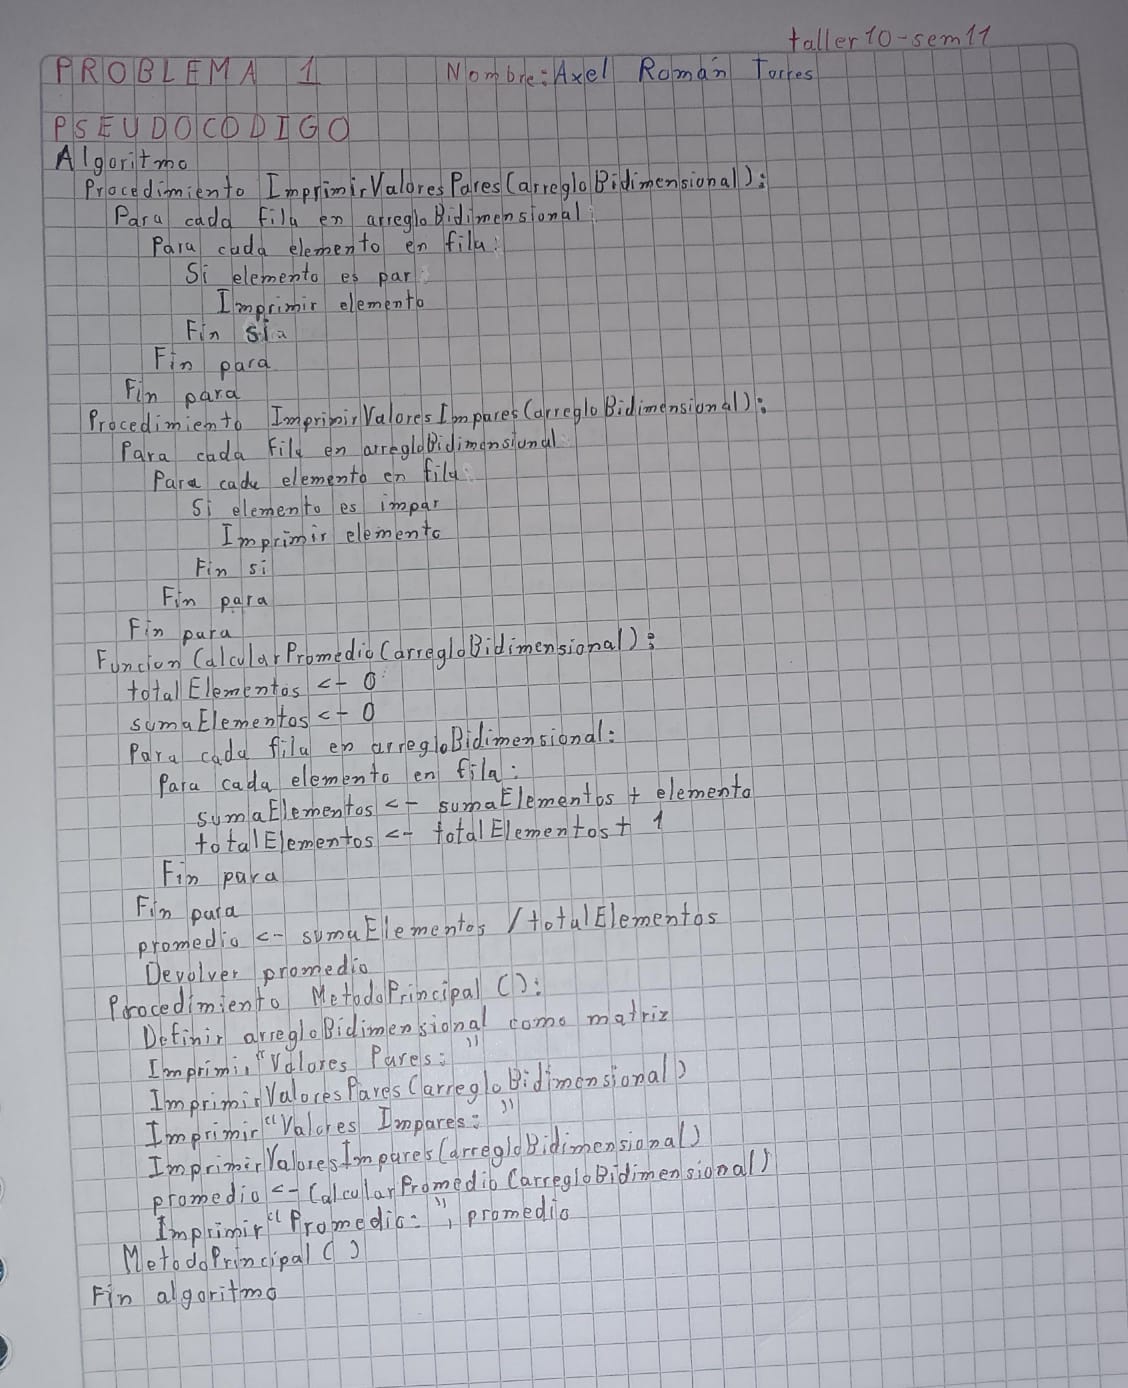 taller 10-sem11
PROBLEMA 1 Nombre: Axel Román Torres
PSEUDOCODIGO
Algoritmo
Procedimiento ImprimirValoresPares(arregloBidimensional):
Para cada fila en arregloBidimensional:
Para cada elemento en fila:
Si elemento es par
Imprimir elemento
Fin si
Fin para
Fin para
Procedimiento ImprimirValoresImpares(arregloBidimensional):
Para cada fila en arregloBidimensional:
Para cada elemento en fila:
Si elemento es impar
Imprimir elemento
Fin si
Fin para
Fin para
Funcion CalcularPromedio(arregloBidimensional):
totalElementos <- 0
sumaElementos <- 0
Para cada fila en arregloBidimensional:
Para cada elemento en fila:
sumaElementos <- sumaElementos + elemento
totalElementos <- totalElementos + 1
Fin para
Fin para
promedio <- sumaElementos / totalElementos
Devolver promedio
Procedimiento MetodoPrincipal():
Definir arregloBidimensional como matriz
Imprimir "Valores Pares: "
ImprimirValoresPares(arregloBidimensional)
Imprimir "Valores Impares: "
ImprimirValoresImpares(arregloBidimensional)
promedio <- CalcularPromedio(arregloBidimensional)
Imprimir "Promedio: ", promedio
MetodoPrincipal()
Fin algoritmo